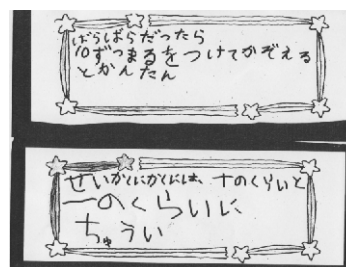 ばらばらだったら
10ずつまるをつけてかぞえる
とかんたん
せいかくにかくには、十のくらいと
一のくらいに
ちゅうい